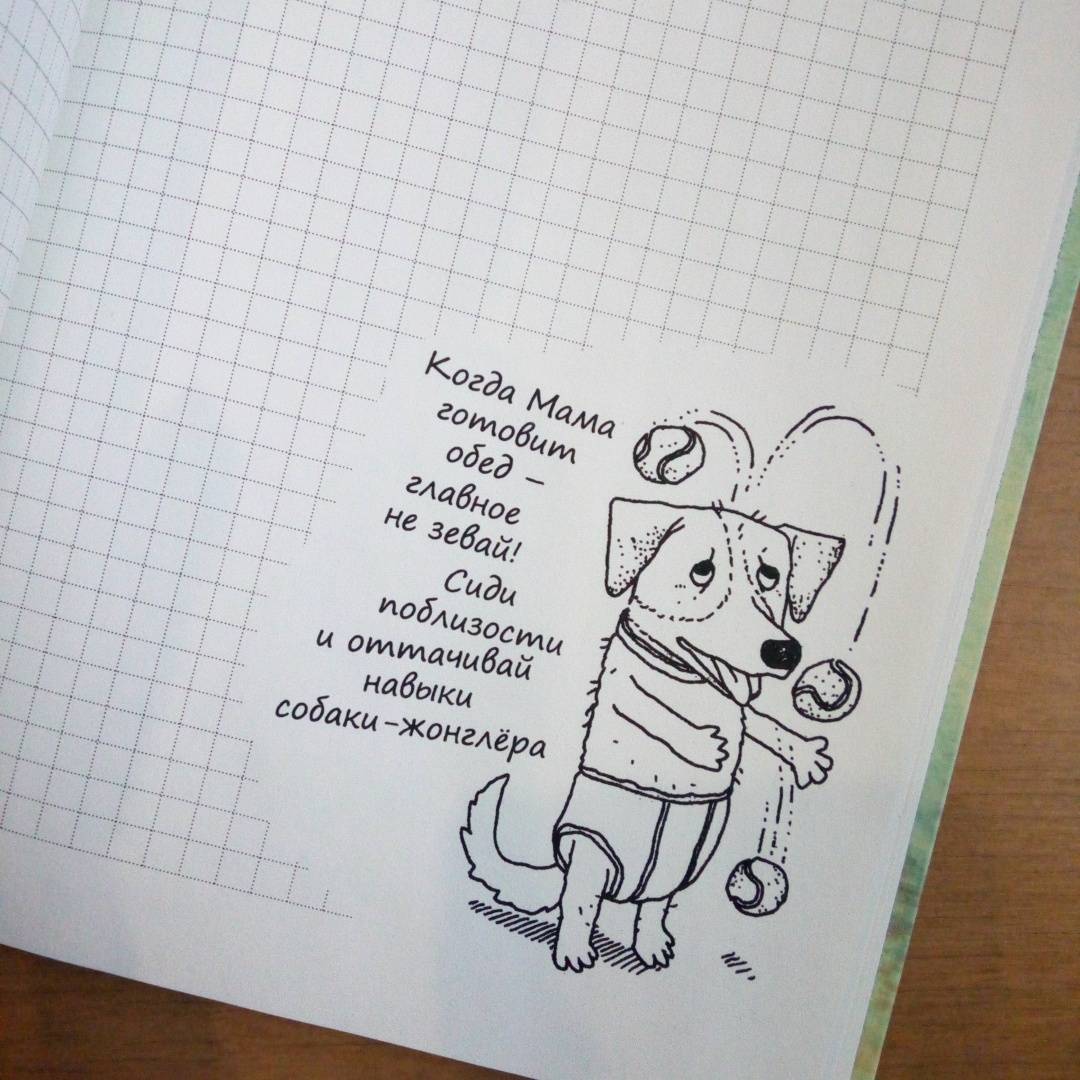 Когда Мама
готовит
обед –
главное
не зевай!
Сиди
поблизости
и оттачивай
навыки
собаки-жонглёра